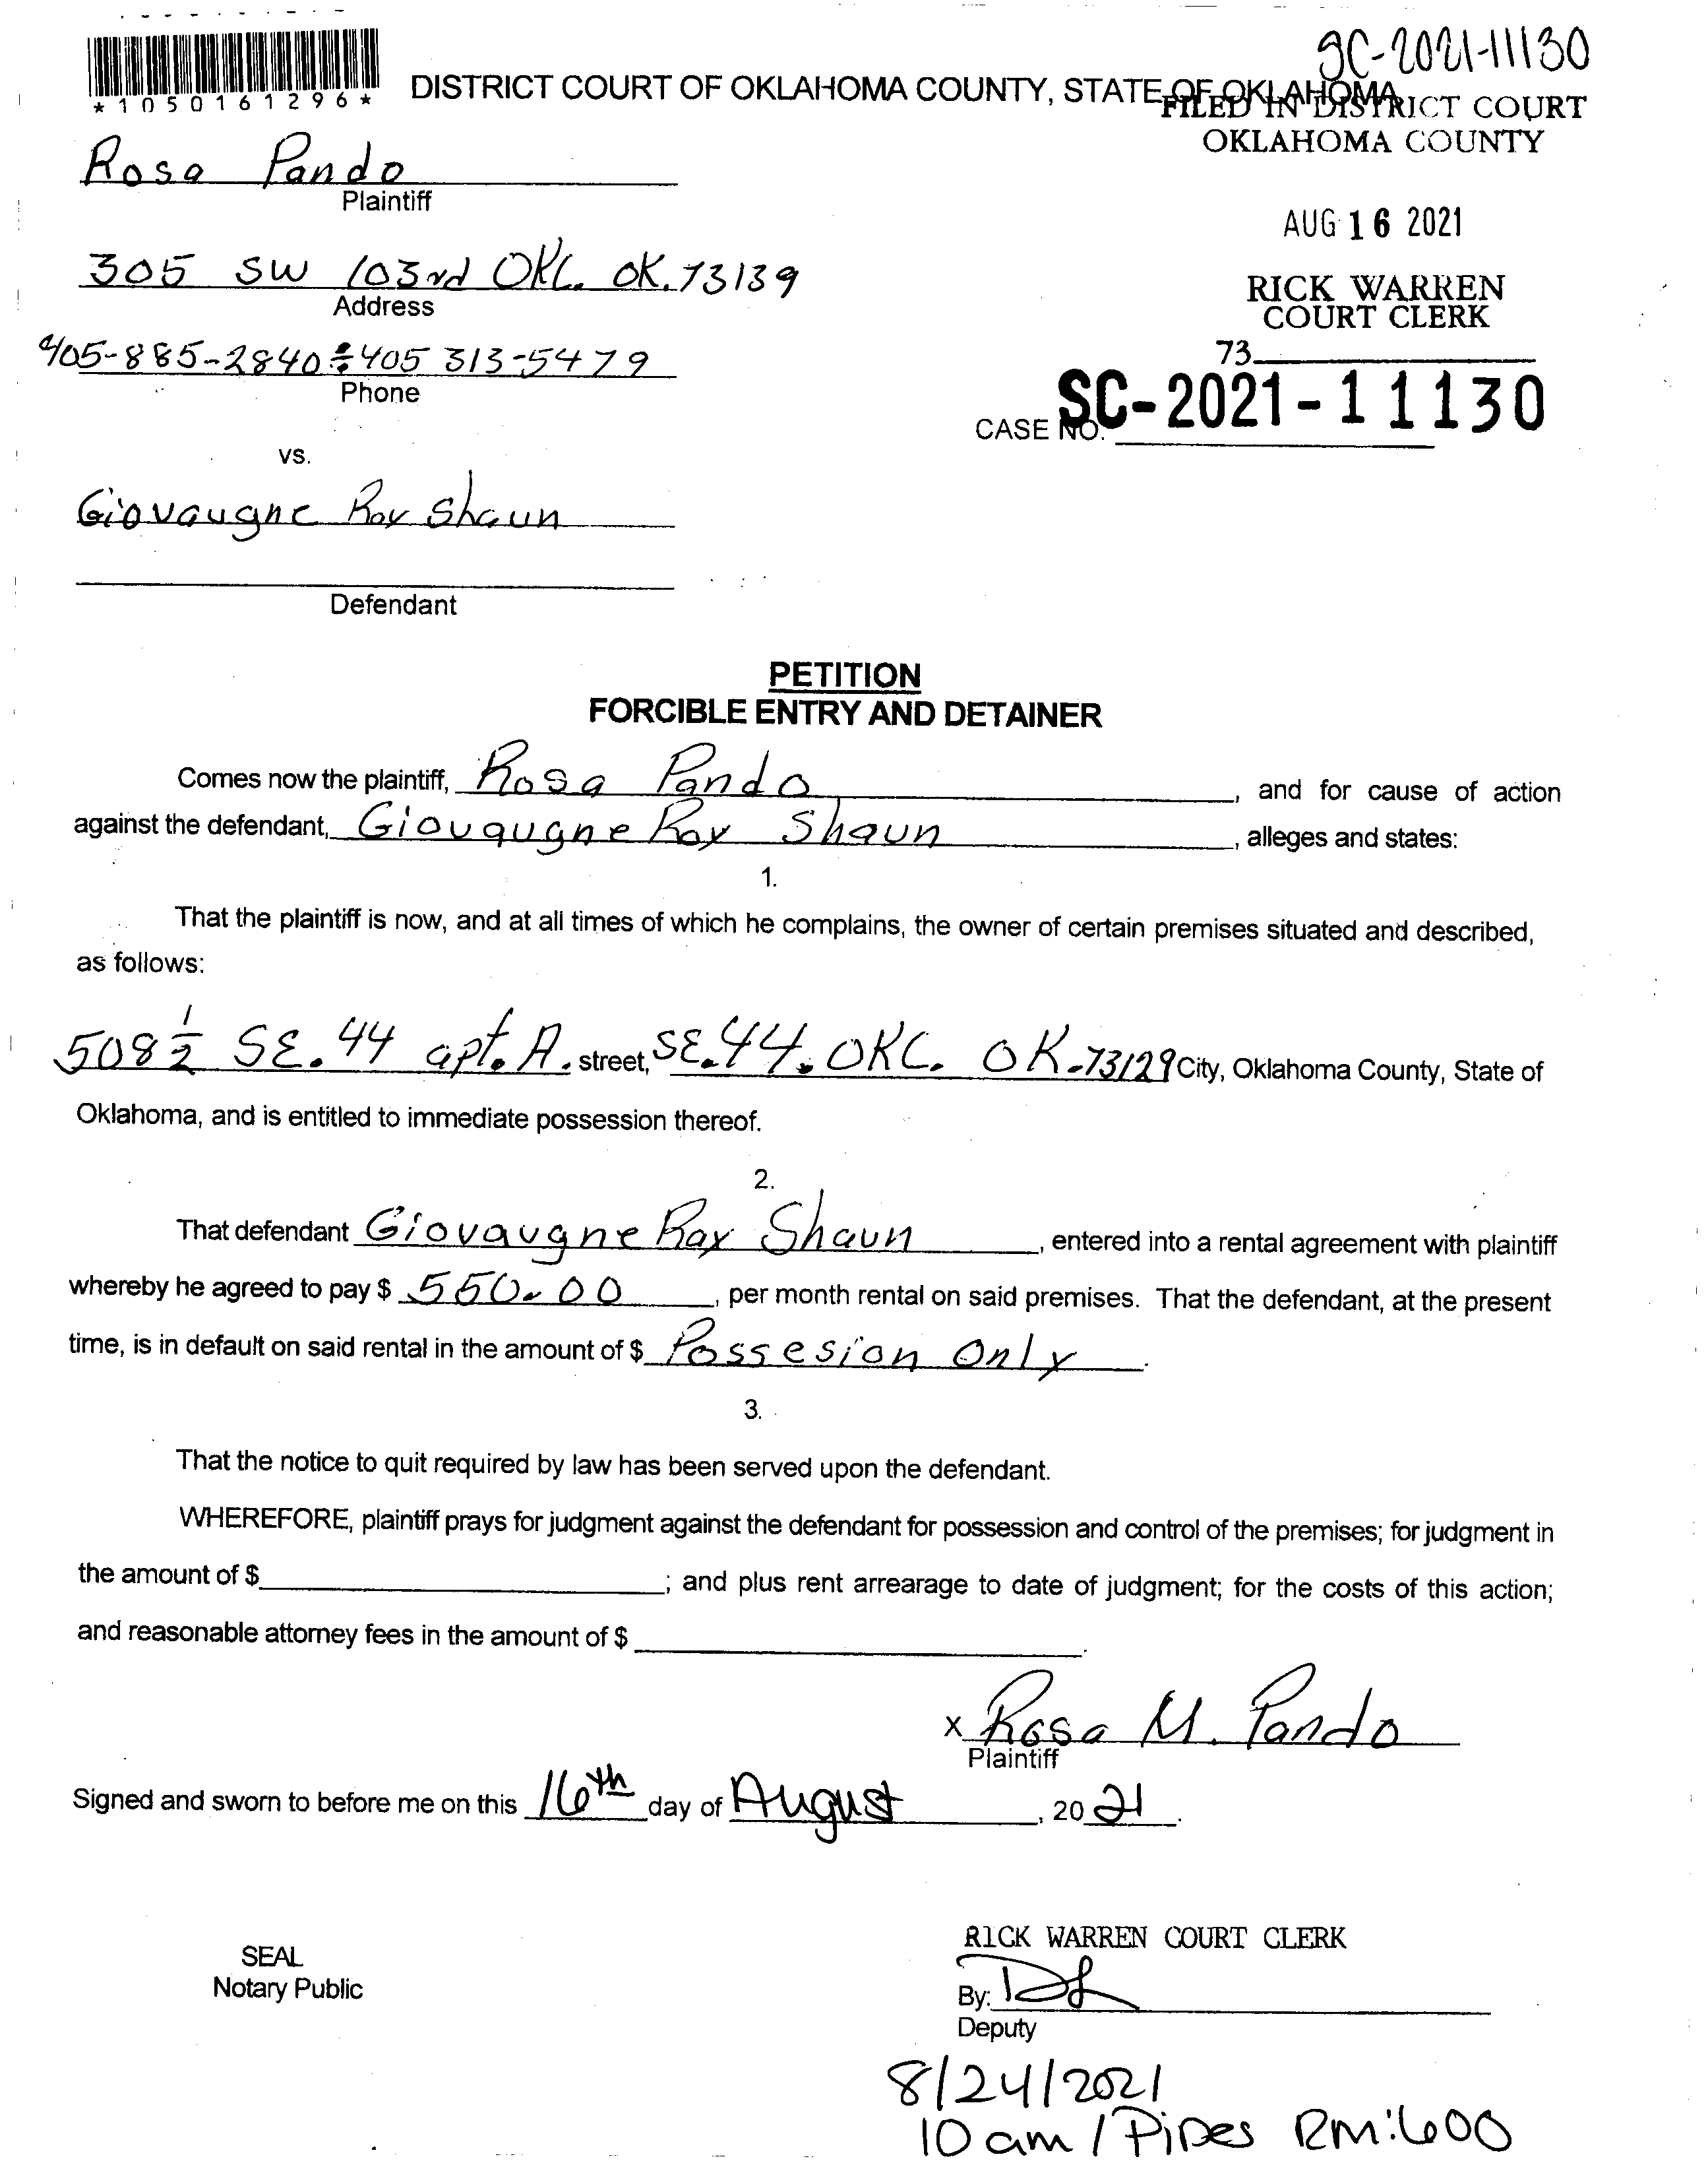 SC-2021-11130
*1050161296*
DISTRICT COURT OF OKLAHOMA COUNTY, STATE OF OKLAHOMA
FILED IN DISTRICT COURT
OKLAHOMA COUNTY
Rosa Pando
Plaintiff
AUG 16 2021
305 SW 103rd OKC. OK. 73139
Address
RICK WARREN
COURT CLERK
405-885-2840 ÷ 405 313-5479
Phone
73
CASE NO. SC-2021-11130
vs.
Giovaugne Ray Shaun
Defendant
PETITION
FORCIBLE ENTRY AND DETAINER
Comes now the plaintiff, Rosa Pando, and for cause of action
against the defendant, Giovaugne Ray Shaun, alleges and states:
1.
That the plaintiff is now, and at all times of which he complains, the owner of certain premises situated and described,
as follows:
508 1/2 SE. 44 apt. A. street, SE. 44. OKC. OK. 73129 City, Oklahoma County, State of
Oklahoma, and is entitled to immediate possession thereof.
2.
That defendant Giovaugne Ray Shaun, entered into a rental agreement with plaintiff
whereby he agreed to pay $ 550.00, per month rental on said premises. That the defendant, at the present
time, is in default on said rental in the amount of $ Possesion Only.
3.
That the notice to quit required by law has been served upon the defendant.
WHEREFORE, plaintiff prays for judgment against the defendant for possession and control of the premises; for judgment in
the amount of $ ; and plus rent arrearage to date of judgment; for the costs of this action;
and reasonable attorney fees in the amount of $ .
x Rosa M. Pando
Plaintiff
Signed and sworn to before me on this 16th day of August, 2021.
SEAL
Notary Public
RICK WARREN COURT CLERK
By:
Deputy
8/24/2021
10 am / Pipes RM:600